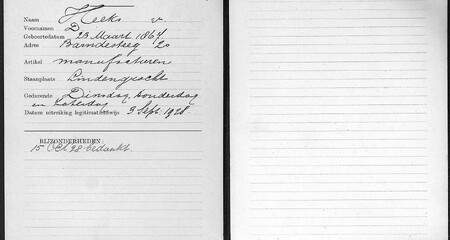 Naam Heeks v.
Voornamen D
Geboortedatum 23 Maart 1867
Adres Barndesteeg 20
Artikel manufacturen
Staanplaats Lindengracht
Gedurende Dinsdag, donderdag
en zaterdag
Datum uitreiking legitimatiebewijs 3 Sept. 1928
BIJZONDERHEDEN
15 Oct. 28 bedankt.